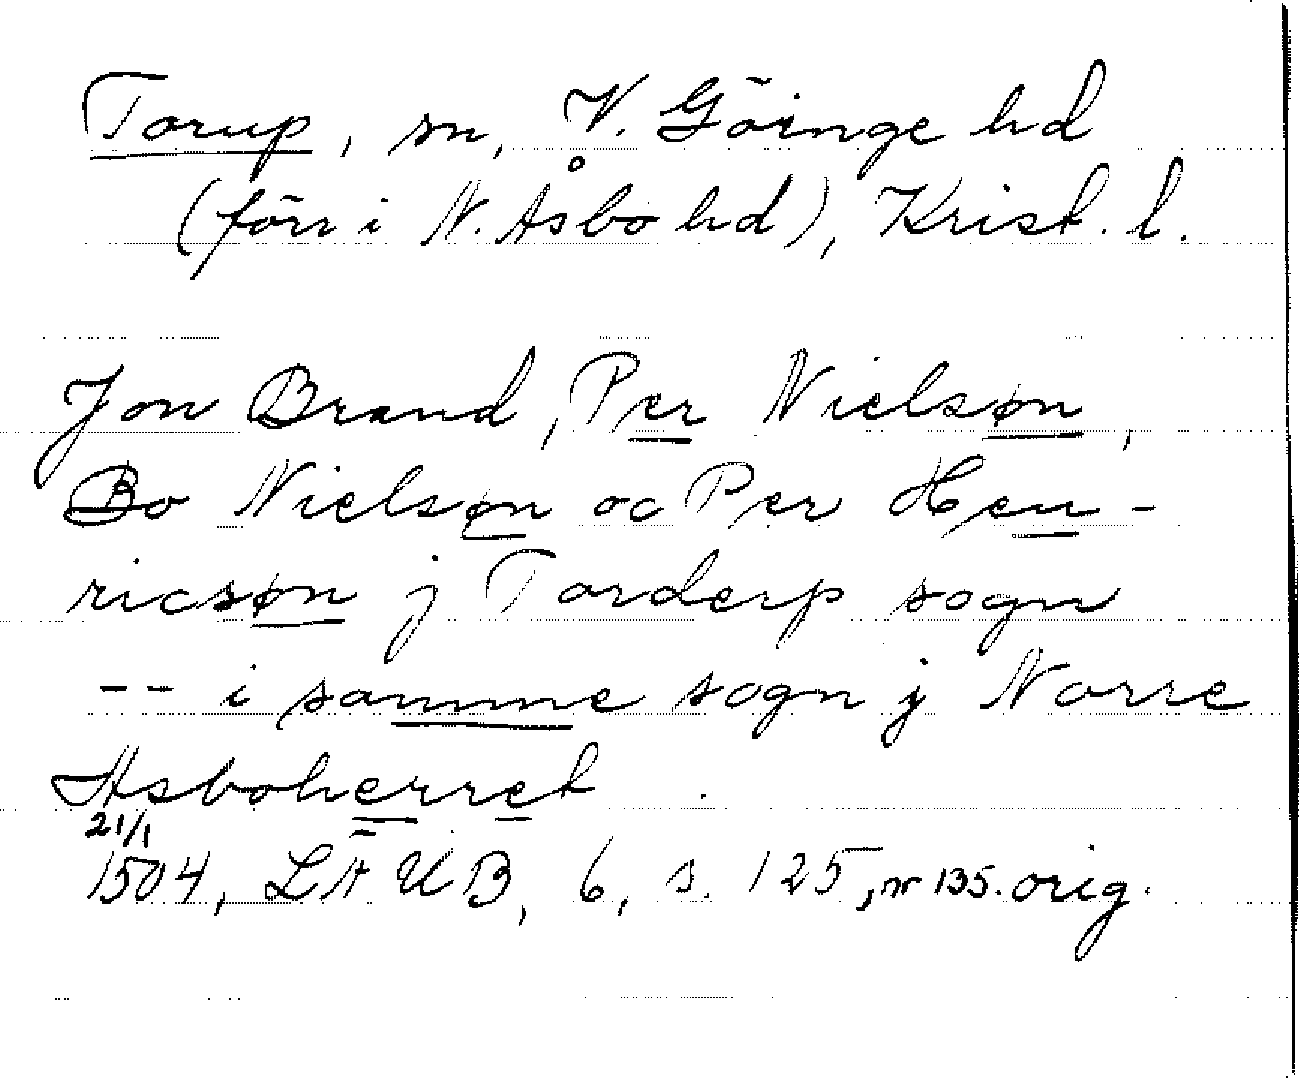 Torup, sn, V. Göinge hd
(förr i N. Åsbo hd), Krist. l.
Jon Brand, Per Nielsøn,
Bo Nielsøn oc Per Hen-
ricsøn j Torderp sogn
-- i samme sogn j Norre
Asboherret
21/1
1504, LÄUB, 6, s. 125, nr 135. orig.